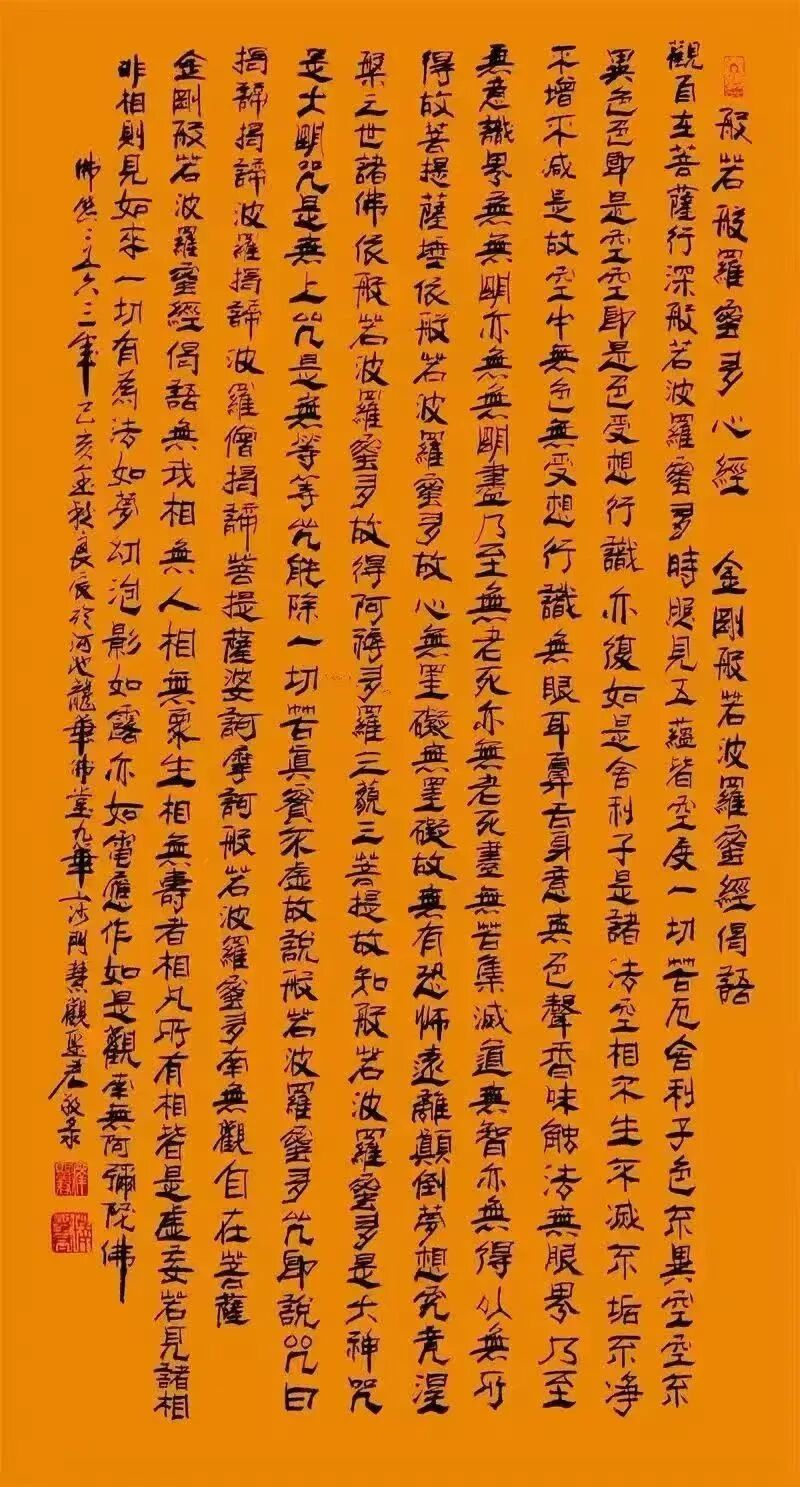 般若般羅蜜多心經 金剛般若波羅蜜經偈語
觀自在菩薩行深般若波羅蜜多時照見五蘊皆空度一切苦厄舍利子色不異空空不
異色色即是空空即是色受想行識亦復如是舍利子是諸法空相不生不滅不垢不净
不增不減是故空中無色無受想行識無眼耳鼻舌身意無色聲香味觸法無眼界乃至
無意識界無無明亦無無明盡乃至無老死亦無老死盡無苦集滅道無智亦無得以無所
得故菩提薩埵依般若波羅蜜多故心無罣礙無罣礙故無有恐怖遠離顛倒夢想究竟涅
槃三世諸佛依般若波羅蜜多故得阿耨多羅三藐三菩提故知般若波羅蜜多是大神咒
是大明咒是無上咒是無等等咒能除一切苦真實不虛故說般若波羅蜜多咒即說咒曰
揭諦揭諦波羅揭諦波羅僧揭諦菩提薩婆訶摩訶般若波羅蜜多南無觀自在菩薩
金剛般若波羅蜜經偈語無我相無人相無眾生相無壽者相凡所有相皆是虛妄若見諸相
非相則見如來一切有為法如夢幻泡影如露亦如電應作如是觀南無阿彌陀佛
佛曆二五六三年己亥金秋良辰於河池龍華佛堂九華沙門慧觀聖君敬錄